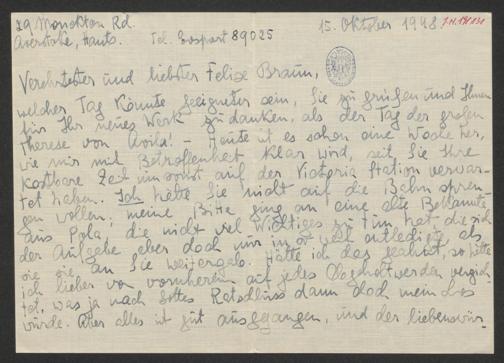 29 Monckton Rd.
Alverstoke, Hants. Tel. Gosport 89025
15. Oktober 1948
Verehrtester und liebster Felix Braun,
welcher Tag könnte geeigneter sein, Sie zu grüßen und Ihnen
für Ihr neues Werk zu danken, als der Tag der großen
Therese von Avila! – Heute ist es schon eine Woche her,
wie mir mit Betroffenheit klar wird, seit Sie Ihre
kostbare Zeit umsonst auf der Victoria Station verwar-
tet haben. Ich hätte Sie nicht auf die Bahn spren-
gen wollen. meine Bitte ging an eine alte Bekannte
aus Pola, die nicht viel Wichtiges zu tun hat, die sich
der Aufgabe aber doch nur entledigte, als
sie sie an Sie weitergab. Hätte ich das geahnt, so hätte
ich lieber von vornherein auf jedes Abgeholtwerden verzich-
tet, was ja nach Gottes Ratschluss dann doch mein Los
wurde. Aber alles ist gut ausgegangen, und der liebenswür-